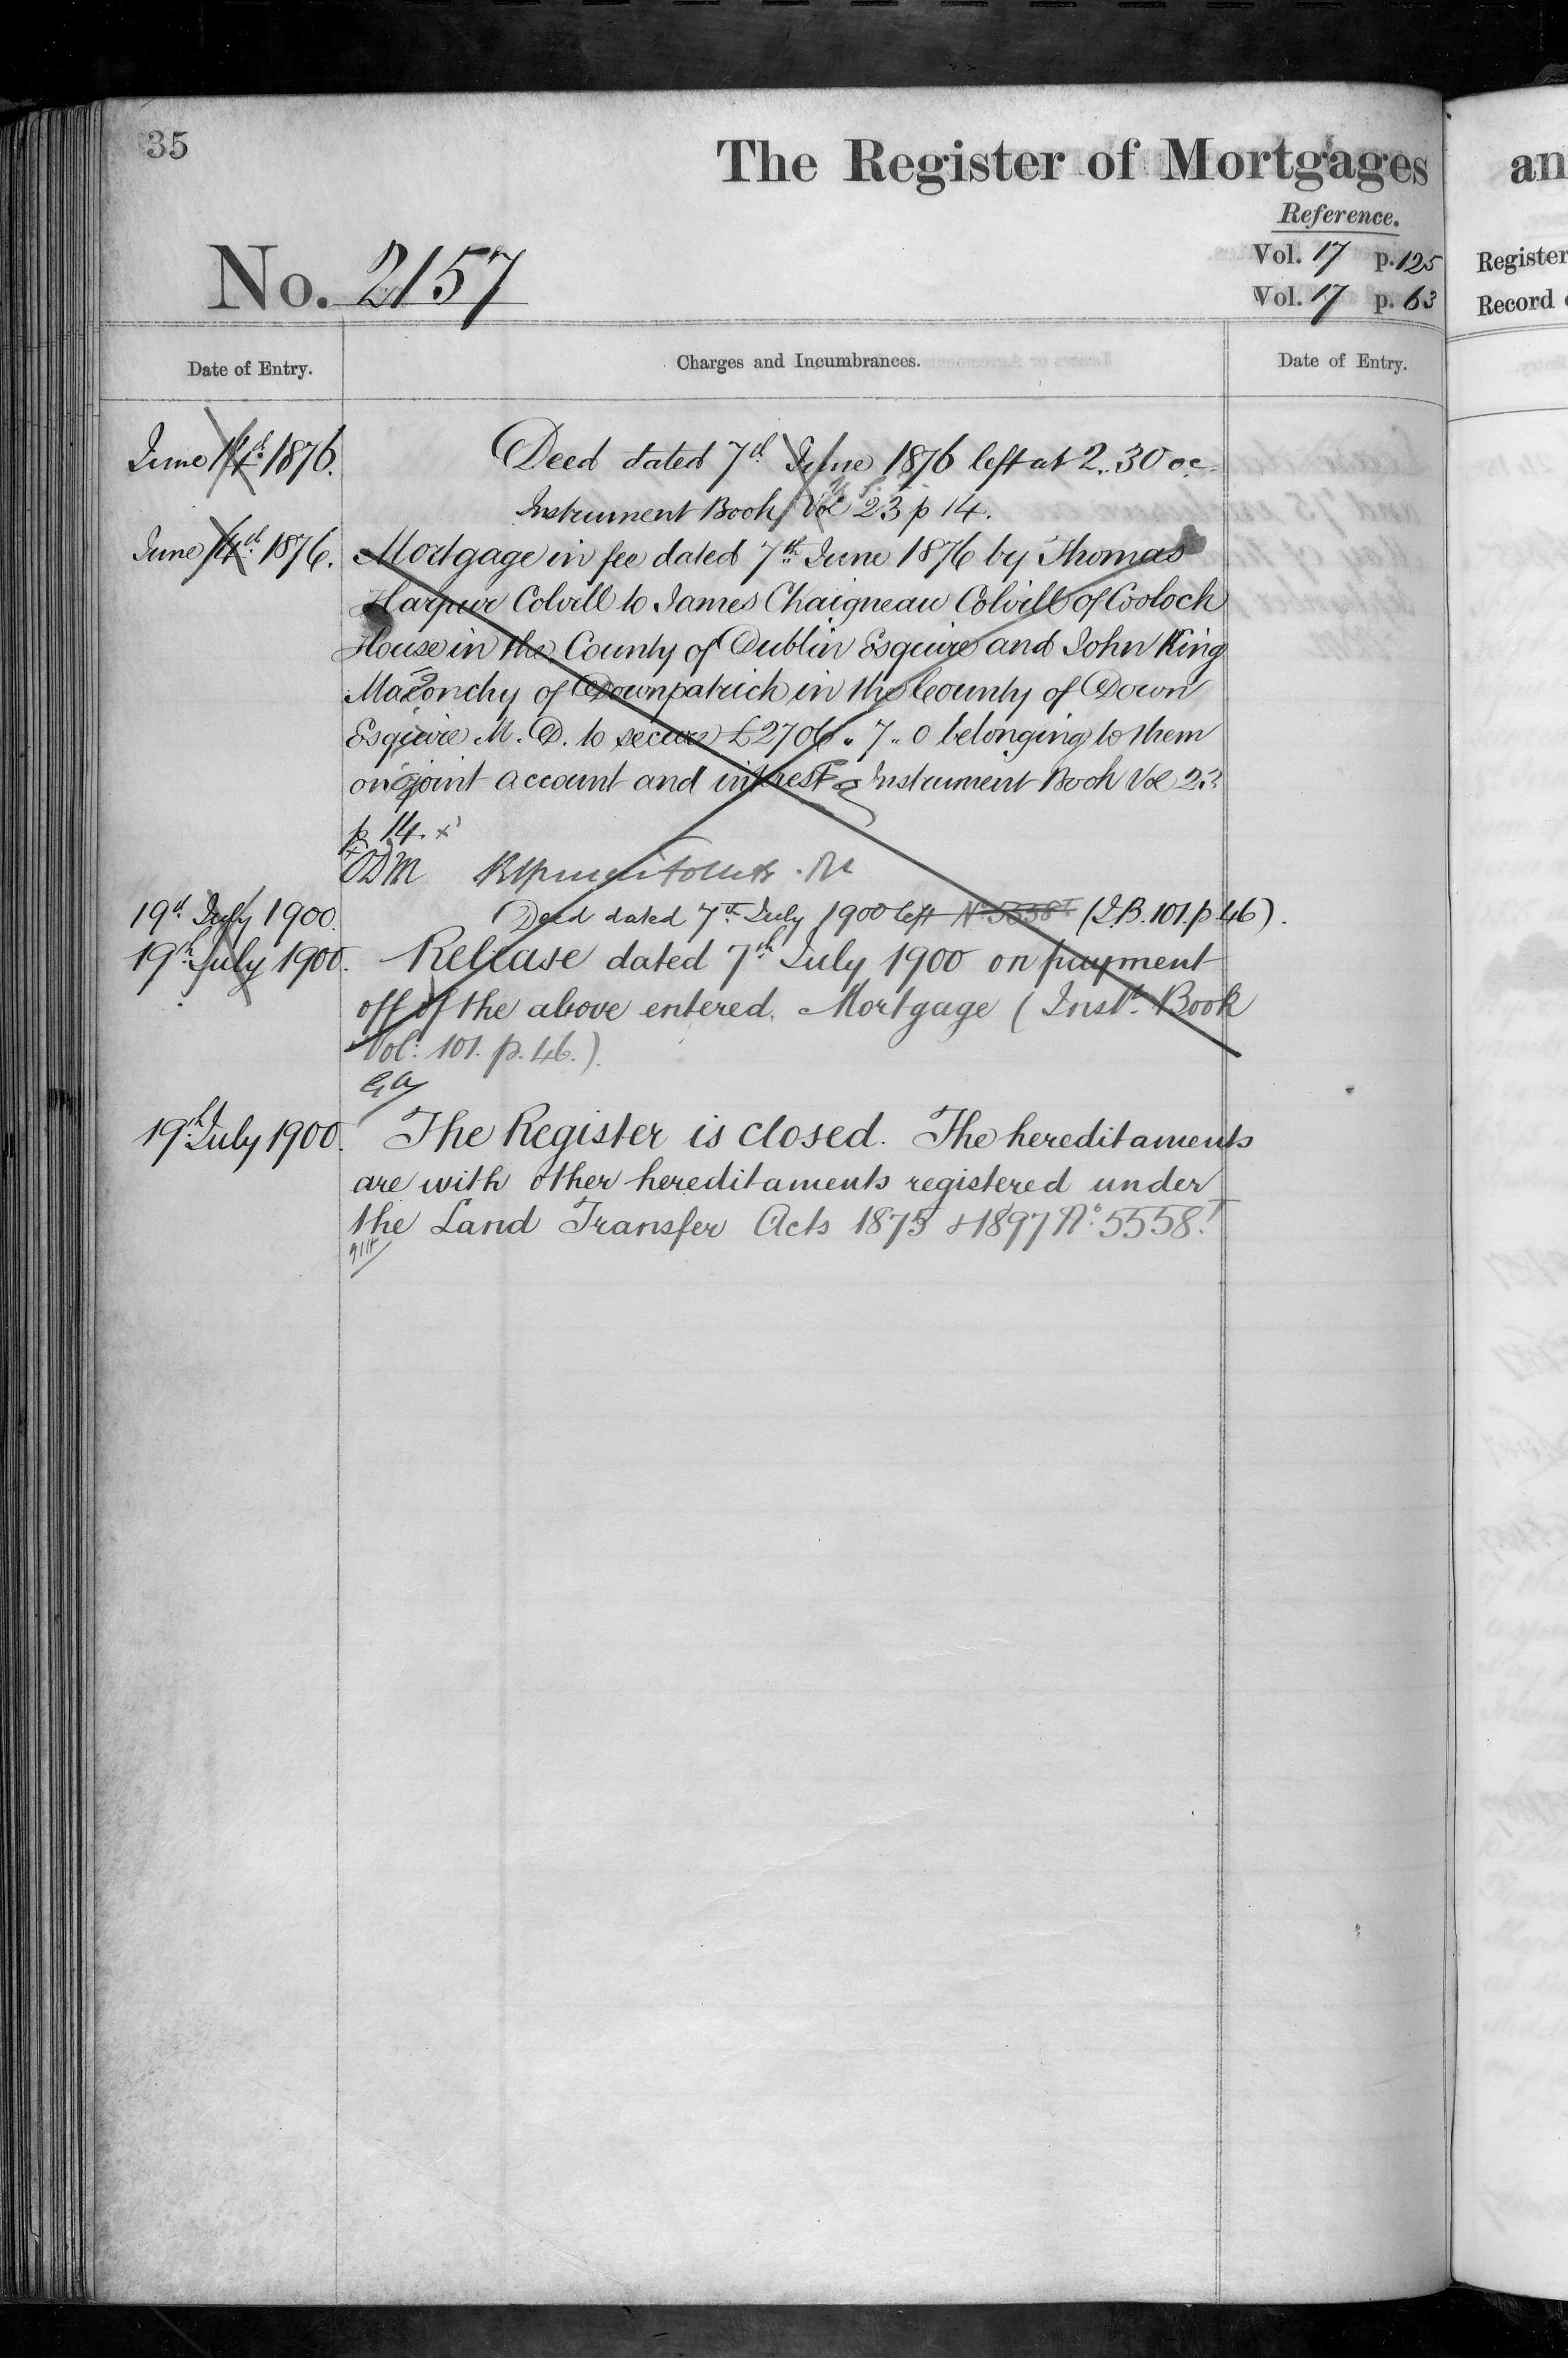 35
The Register of Mortgages
Reference.
No. 2157
Vol. 17 p. 125
Vol. 17 p. 63
Date of Entry.
Charges and Incumbrances.
Date of Entry.
June 14th 1876.
Deed dated 7th June 1876 left at 2..30 oc
Instrument Book Vol 23 p 14.
June 14th 1876.
Mortgage in fee dated 7th June 1876 by Thomas
Harpur Colvill to James Chaigneau Colvill of Cooloch
House in the County of Dublin Esquire and John King
of Downpatrick in the County of Down
Esquire M. D. to secure £2706 .. 7 .. 0 belonging to them
on joint account and interest Instrument Book Vol 23
p 14. x
19th July 1900.
Deed dated 7th July 1900 left No. 5558 I (I.B. 101. p. 46).
19th July 1900.
Release dated 7th July 1900 on payment
off of the above entered. Mortgage ( Inst. Book
Vol: 101. p. 46.)
19th July 1900.
The Register is closed. The hereditaments
are with other hereditaments registered under
the Land Transfer Acts 1875 & 1897 No. 5558. I
an
Register
Record